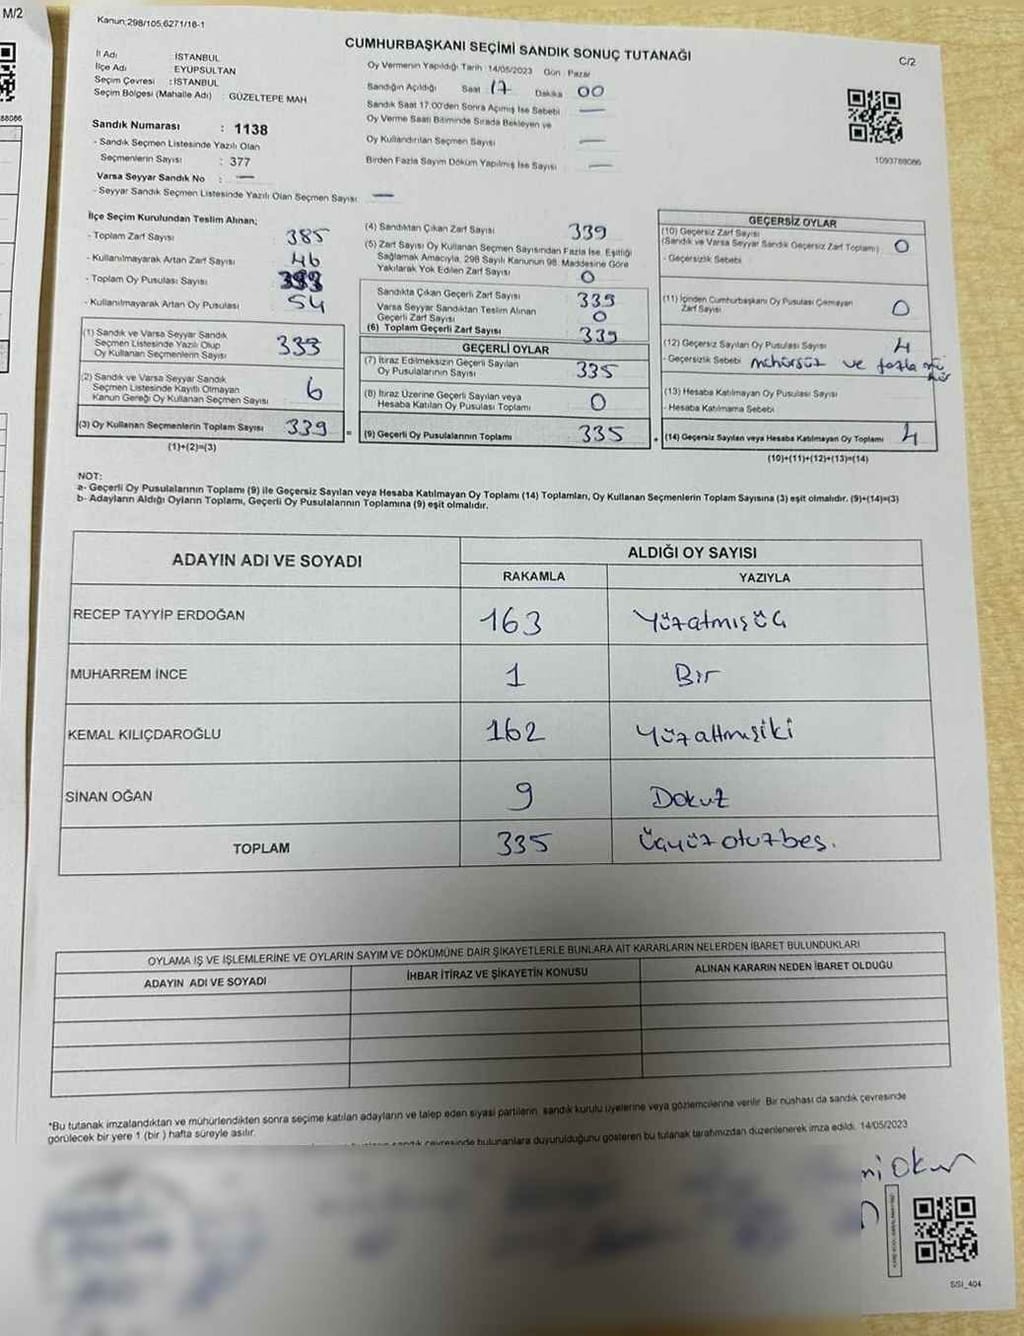 M/2
88086
Kanun;298/105,6271/16-1
CUMHURBAŞKANI SEÇİMİ SANDIK SONUÇ TUTANAĞI
C/2
İl Adı : İSTANBUL
İlçe Adı : EYÜPSULTAN
Seçim Çevresi : İSTANBUL
Seçim Bölgesi (Mahalle Adı) : GÜZELTEPE MAH
Sandık Numarası : 1138
- Sandık Seçmen Listesinde Yazılı Olan
Seçmenlerin Sayısı : 377
Varsa Seyyar Sandık No : —
- Seyyar Sandık Seçmen Listesinde Yazılı Olan Seçmen Sayısı —
Oy Vermenin Yapıldığı Tarih : 14/05/2023 Gün : Pazar
Sandığın Açıldığı Saat 17 Dakika 00
Sandık Saat 17:00'den Sonra Açımış İse Sebebi —
Oy Verme Saati Bitiminde Sırada Bekleyen ve
Oy Kullandırılan Seçmen Sayısı —
Birden Fazla Sayım Döküm Yapılmış İse Sayısı —
1093788086
İlçe Seçim Kurulundan Teslim Alınan;
- Toplam Zarf Sayısı 385
- Kullanılmayarak Artan Zarf Sayısı 46
- Toplam Oy Pusulası Sayısı 393
- Kullanılmayarak Artan Oy Pusulası 54
(1) Sandık ve Varsa Seyyar Sandık
Seçmen Listesinde Yazılı Olup
Oy Kullanan Seçmenlerin Sayısı 333
(2) Sandık ve Varsa Seyyar Sandık
Seçmen Listesinde Kayıtlı Olmayan
Kanun Gereği Oy Kullanan Seçmen Sayısı 6
(3) Oy Kullanan Seçmenlerin Toplam Sayısı 339 =
(1)+(2)=(3)
(4) Sandıktan Çıkan Zarf Sayısı 339
(5) Zarf Sayısı Oy Kullanan Seçmen Sayısından Fazla İse, Eşitliği
Sağlamak Amacıyla, 298 Sayılı Kanunun 98. Maddesine Göre
Yakılarak Yok Edilen Zarf Sayısı 0
Sandıkta Çıkan Geçerli Zarf Sayısı 339
Varsa Seyyar Sandıktan Teslim Alınan
Geçerli Zarf Sayısı 0
(6) Toplam Geçerli Zarf Sayısı 339
GEÇERLİ OYLAR
(7) İtiraz Edilmeksizin Geçerli Sayılan
Oy Pusulalarının Sayısı 335
(8) İtiraz Üzerine Geçerli Sayılan veya
Hesaba Katılan Oy Pusulası Toplamı 0
(9) Geçerli Oy Pusulalarının Toplamı 335 +
GEÇERSİZ OYLAR
(10) Geçersiz Zarf Sayısı
(Sandık ve Varsa Seyyar Sandık Geçersiz Zarf Toplamı) 0
- Geçersizlik Sebebi
(11) İçinden Cumhurbaşkanı Oy Pusulası Çıkmayan
Zarf Sayısı 0
(12) Geçersiz Sayılan Oy Pusulası Sayısı 4
- Geçersizlik Sebebi mühürsüz ve fazla mühür
(13) Hesaba Katılmayan Oy Pusulası Sayısı
- Hesaba Katılmama Sebebi
(14) Geçersiz Sayılan veya Hesaba Katılmayan Oy Toplamı 4
(10)+(11)+(12)+(13)=(14)
NOT:
a- Geçerli Oy Pusulalarının Toplamı (9) ile Geçersiz Sayılan veya Hesaba Katılmayan Oy Toplamı (14) Toplamları, Oy Kullanan Seçmenlerin Toplam Sayısına (3) eşit olmalıdır. (9)+(14)=(3)
b- Adayların Aldığı Oyların Toplamı, Geçerli Oy Pusulalarının Toplamına (9) eşit olmalıdır.
ADAYIN ADI VE SOYADI ALDIĞI OY SAYISI
RAKAMLA YAZIYLA
RECEP TAYYİP ERDOĞAN 163 Yüzatmışüç
MUHARREM İNCE 1 Bir
KEMAL KILIÇDAROĞLU 162 Yüzaltmışiki
SİNAN OĞAN 9 Dokuz
TOPLAM 335 Üçyüzotuzbeş.
OYLAMA İŞ VE İŞLEMLERİNE VE OYLARIN SAYIM VE DÖKÜMÜNE DAİR ŞİKAYETLERLE BUNLARA AİT KARARLARIN NELERDEN İBARET BULUNDUKLARI
ADAYIN ADI VE SOYADI İHBAR İTİRAZ VE ŞİKAYETİN KONUSU ALINAN KARARIN NEDEN İBARET OLDUĞU
*Bu tutanak imzalandıktan ve mühürlendikten sonra seçime katılan adayların ve talep eden siyasi partilerin, sandık kurulu üyelerine veya gözlemcilerine verilir. Bir nüshası da sandık çevresinde
görülecek bir yere 1 (bir ) hafta süreyle asılır.
sandık çevresinde bulunanlara duyurulduğunu gösteren bu tutanak tarafımızdan düzenlenerek imza edildi. 14/05/2023
SSI_404